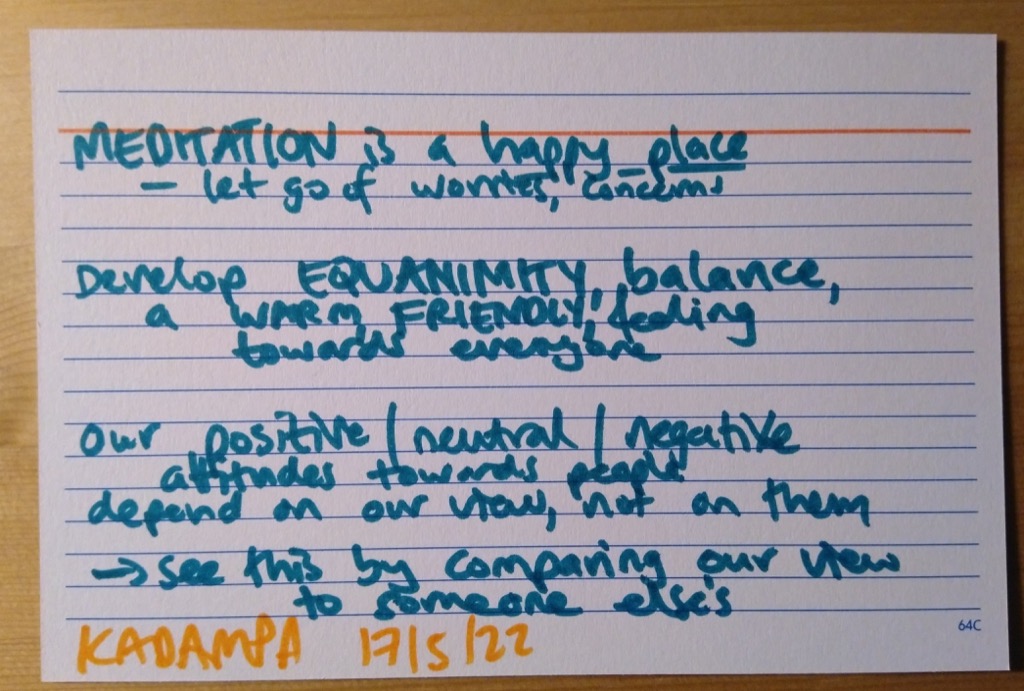 MEDITATION is a happy place
- let go of worries, concerns
Develop EQUANIMITY, balance,
a WARM, FRIENDLY, feeling
towards everyone
Our positive / neutral / negative
attitudes towards people
depend on our view, not on them
→ see this by comparing our view
to someone else's
64C
KADAMPA 17/5/22